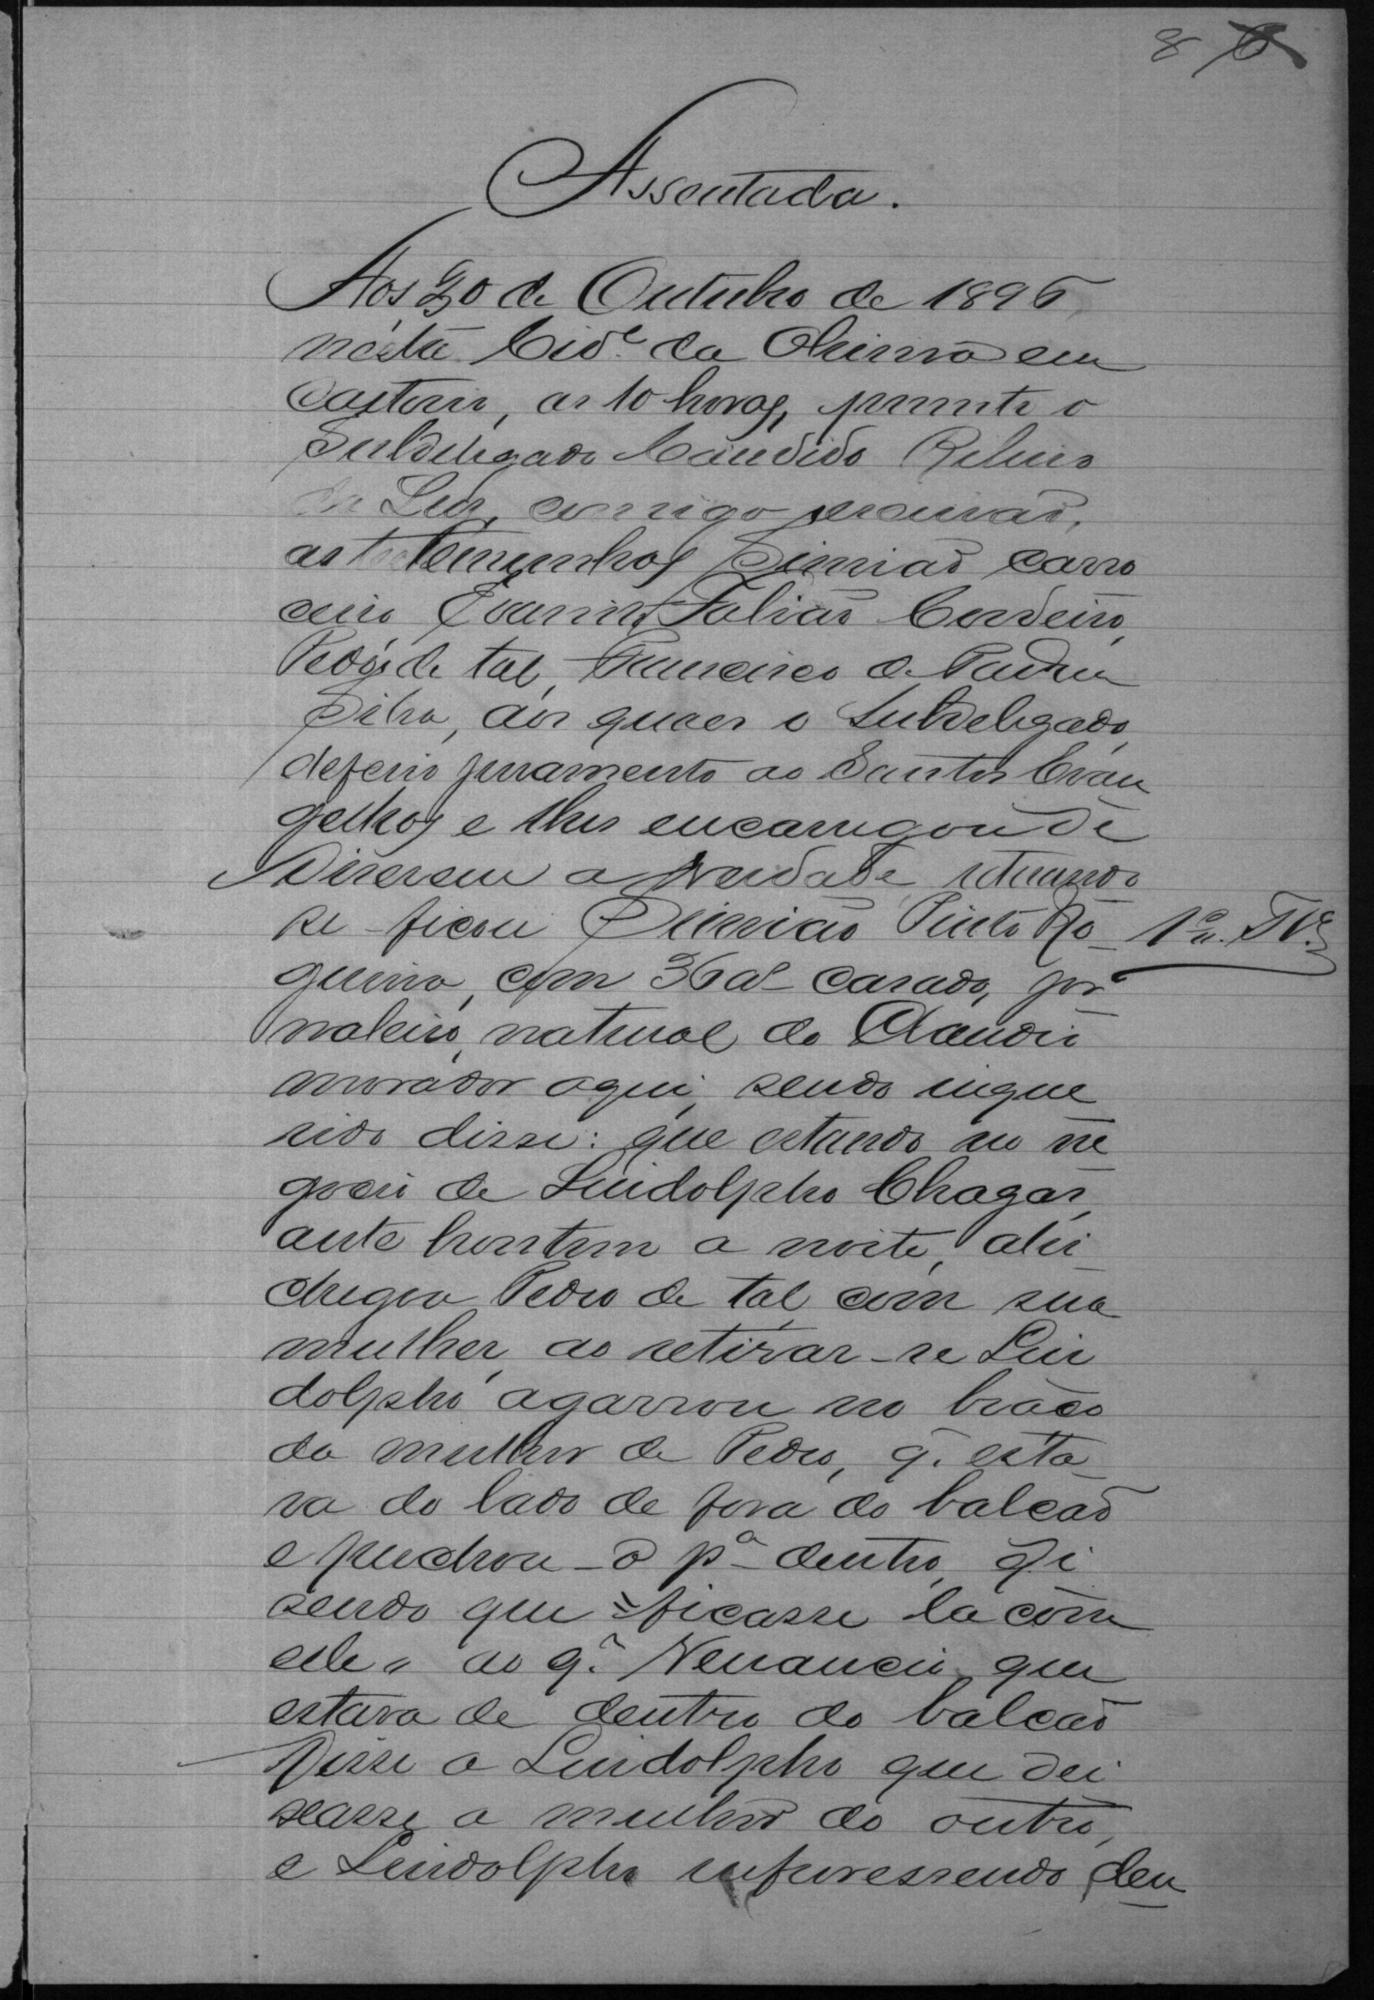 8
Assentada.
Aos 30 de Outubro de 1896
nesta Cid.e da Oliveira em
Cartorio, as 10 horas, presente o
Subdelegado Candido Ribeiro
da Luz, comigo escrivão,
as testemunhas Simião carro
ceiro, Fabião Cordeiro,
Pedro de tal, Francisco de Paula
Silva, aos quaes o Subdelegado
deferio juramento ao Santos Evan
gelhos e lhes encarregou de
diserem a verdade, retirando
se ficou Simião Pinto No 1a. Ta.
gueira, com 36 as casado, jor
naleiro, natural do Claudio
morador aqui, sendo inque
rido disse: que estando no ne
gocio de Lindolpho Chagas,
ante hontem a noite, ahi
chegou Pedro de tal com sua
mulher, ao retirar-se Lin
dolpho agarrou no braço
da mulher de Pedro, q. esta
va do lado de fora do balcão
e puchou-a pa dentro, di
sendo que "ficasse la com
elle" ao q. Venancio que
estava de dentro do balcão
disse a Lindolpho que dei
xasse a mulher do outro,
e Lindolpho infuressendo deu